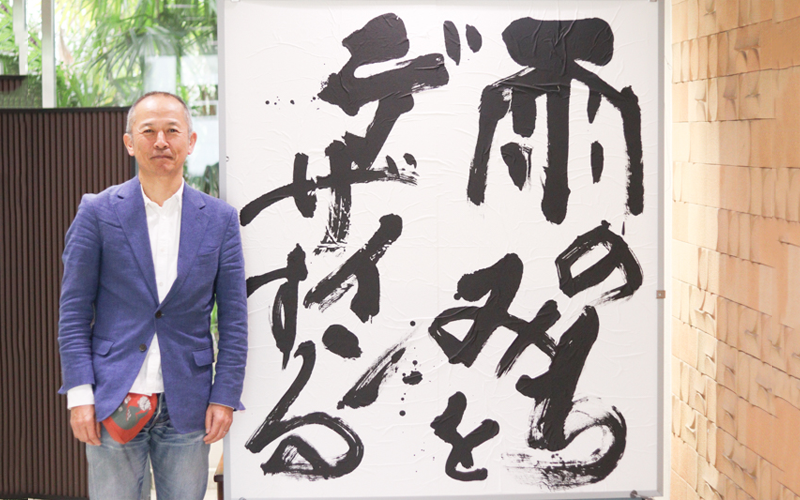 雨のみちを
デザインする